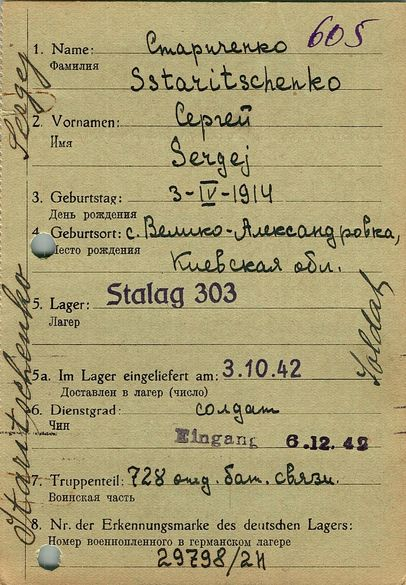 605
1. Name: Стариченко
Фамилия
Sstaritschenko
2. Vornamen: Сергей
Имя
Sergej
3. Geburtstag: 3-IV-1914
День рождения
4. Geburtsort: с. Велико-Александровка,
Место рождения
Киевская обл.
5. Lager: Stalag 303
Лагерь
5a. Im Lager eingeliefert am: 3.10.42
Доставлен в лагерь (число)
6. Dienstgrad: солдат
Чин
Eingang 6.12.42
7. Truppenteil: 728 отд. бат. связи.
Воинская часть
8. Nr. der Erkennungsmarke des deutschen Lagers:
Номер военнопленного в германском лагере
29798/
Sergej
Staritschenko
Soldat